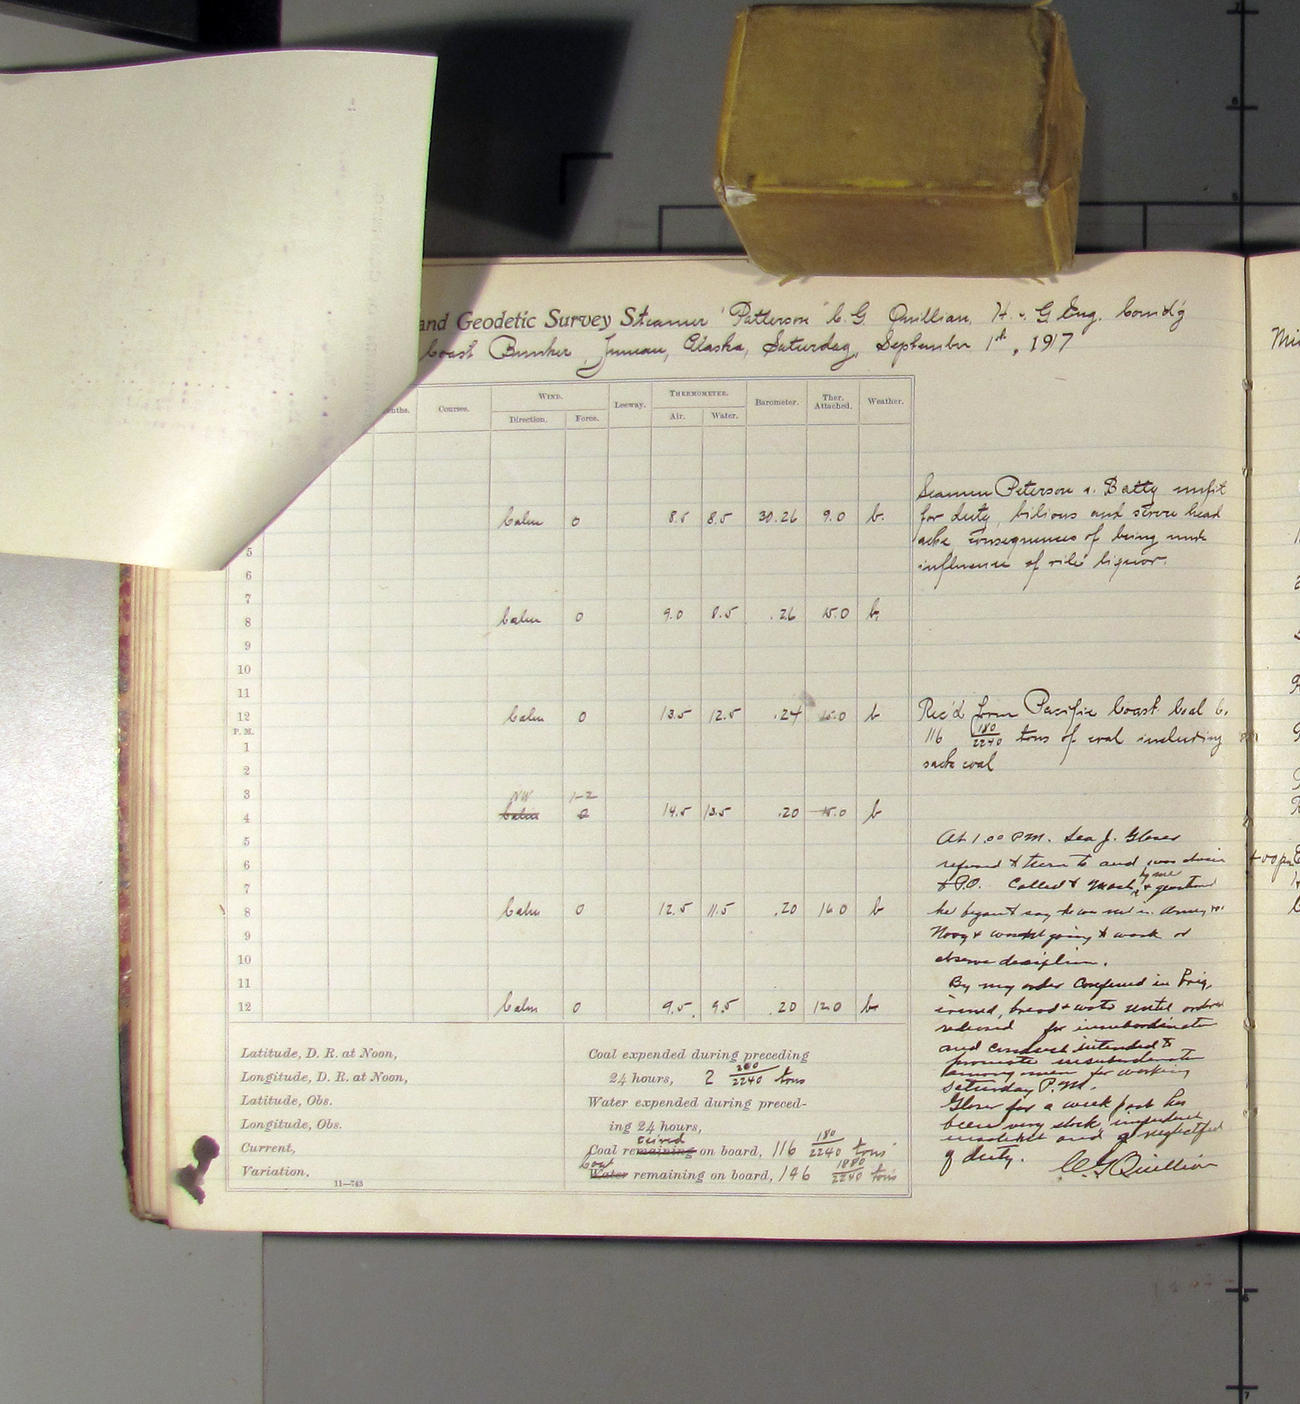 and Geodetic Survey Steamer "Patterson" C.G. Quillian, H. & G. Eng. Comd'g
Coast Bunker, Juneau, Alaska, Saturday, September 1st, 1917
Courses.
WIND.
Direction. Force.
Leeway.
THERMOMETER.
Air. Water.
Barometer.
Ther. Attached.
Weather.
Calm 0 8.5 8.5 30.26 9.0 b.
5
6
7
8 Calm 0 9.0 8.5 .26 15.0 b,
9
10
11
12 Calm 0 13.5 12.5 .24 15.0 b
P. M.
1
2
3 NW 1-2
4 Calm 0 14.5 13.5 .20 15.0 b
5
6
7
8 Calm 0 12.5 11.5 .20 16.0 b
9
10
11
12 Calm 0 9.5 9.5 .20 12.0 b
Seamen Peterson & Batty unfit
for duty, bilious and severe head
ache consequences of being under
influence of vile liquor.
Rec'd from Pacific Coast Coal C.
116 180/2240 tons of coal including
sack coal
At 1.00 P.M. Sea J. Gloser
refused to turn to and was
to P.O. Called to mast by me &
he began to say he was not in Army or
Navy & wasn't going to work or
observe disciplin.
By my order confined in Brig,
ironed, bread & water until order
released for insubordinate
and conduct intended to
promote insubordinate
among men for working
Saturday P.M.
Gloser for a week past has
been very slack, impudent
and neglectful
of duty. C.G. Quillian
Latitude, D. R. at Noon,
Longitude, D. R. at Noon,
Latitude, Obs.
Longitude, Obs.
Current,
Variation,
11—743
Coal expended during preceding
24 hours, 2 260/2240 tons
Water expended during preced-
ing 24 hours,
ceived
Coal remaining on board, 116 180/2240 tons
Coal
Water remaining on board, 146 1880/2240 tons